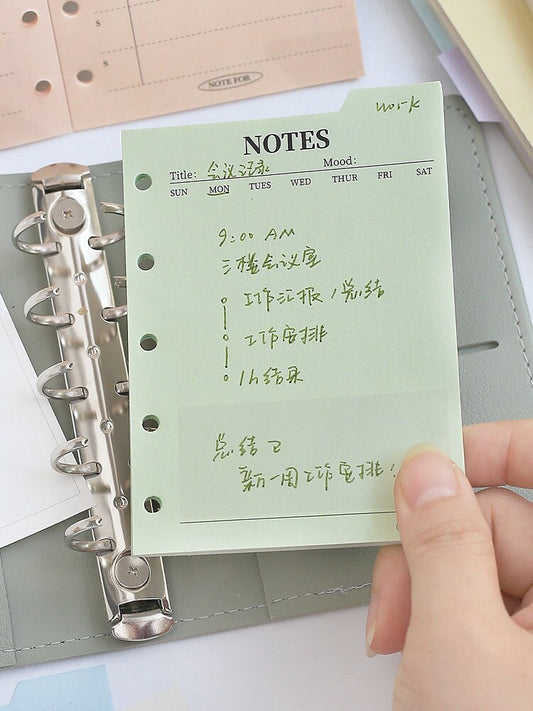 S
S
NOTE FOR
work
NOTES
Title: 会议记录 Mood:
SUN MON TUES WED THUR FRI SAT
9:00 AM
三楼会议室
工作汇报/总结
工作安排
1h结束
总结
新一周工作安排